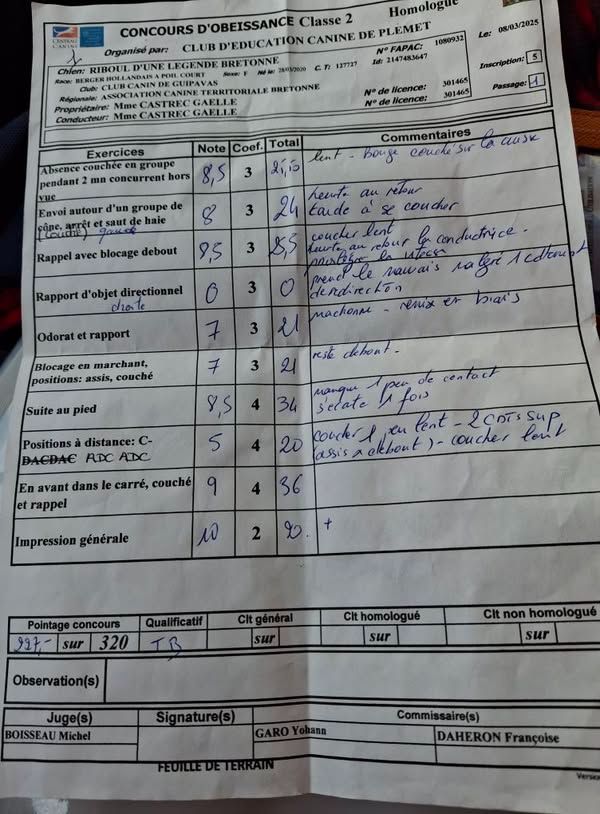 CENTRALE CANINE
CONCOURS D'OBEISSANCE Classe 2 Homologué
Organisé par: CLUB D'EDUCATION CANINE DE PLEMET Le: 08/03/2025
Chien: RIBOUL D'UNE LEGENDE BRETONNE N° FAPAC: 1080932
Race: BERGER HOLLANDAIS A POIL COURT Sexe: F Né le: 28/03/2020 C. T: 127727 Id: 2147483647
Club: CLUB CANIN DE GUIPAVAS Inscription: 5
Régionale: ASSOCIATION CANINE TERRITORIALE BRETONNE
Propriétaire: Mme CASTREC GAELLE N° de licence: 301465
Conducteur: Mme CASTREC GAELLE N° de licence: 301465 Passage: 1
Exercices Note Coef. Total Commentaires
Absence couchée en groupe pendant 2 mn concurrent hors vue 8,5 3 lent - Bouge couché sur la
Envoi autour d'un groupe de cône, arrêt et saut de haie 8 3 24 heurte au retour
tarde à se coucher
(couché) gauche
Rappel avec blocage debout 8,5 3 25,5 coucher lent
heurte au retour la conductrice.
Rapport d'objet directionnel 0 3 0 prend le mauvais
de redirection
droite
Odorat et rapport 7 3 21 machonne - remix en biais
Blocage en marchant, positions: assis, couché 7 3 21 reste debout.
Suite au pied 8,5 4 34 manque 1 peu de contact
s'écarte 1 fois
Positions à distance: C-DACDAC ADC ADC 5 4 20 coucher 1 peu lent - 2 CDTS SUP
assis debout) - coucher lent
En avant dans le carré, couché et rappel 9 4 36
Impression générale 10 2 20. +
Pointage concours Qualificatif Clt général Clt homologué Clt non homologué
227,- sur 320 TB sur sur sur
Observation(s)
Juge(s) Signature(s) Commissaire(s)
BOISSEAU Michel GARO Yohann DAHERON Françoise
FEUILLE DE TERRAIN
Version